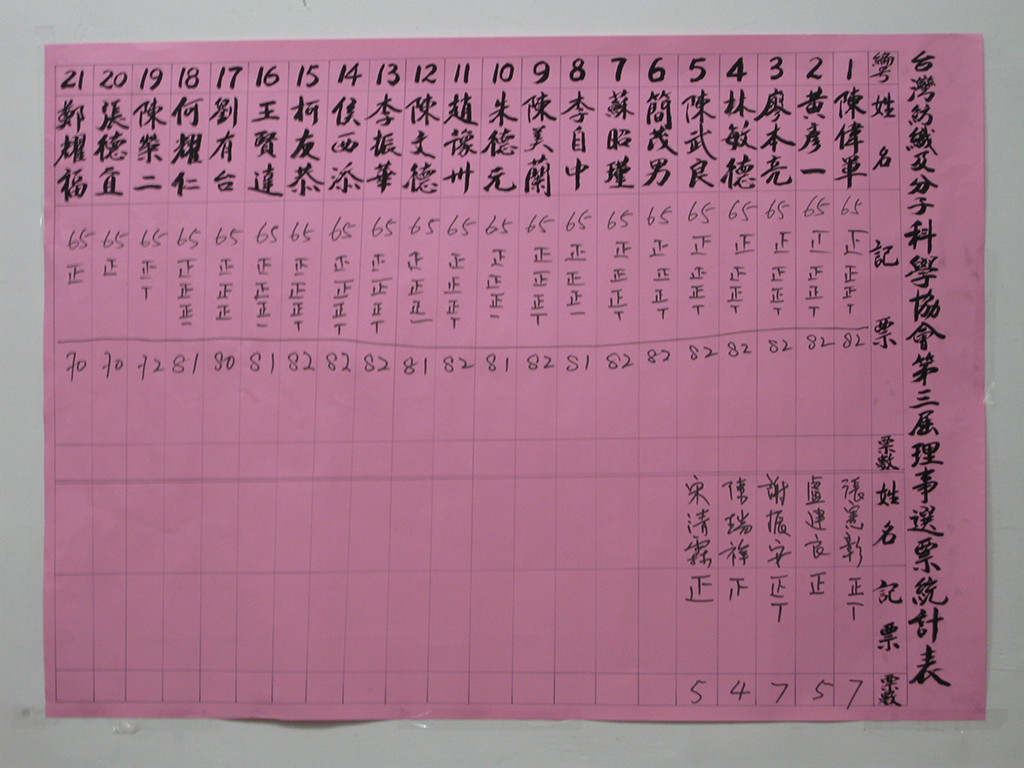 台灣紡織及分子科學協會第三屆理事選票統計表
編号 姓名 記票 票數 姓名 記票 票數
1 陳偉軍 65 正正正T 82 張憲彰 正T 7
2 黃彥一 65 正正正T 82 盧建良 正 5
3 廖本亮 65 正正正T 82 謝振安 正T 7
4 林敏德 65 正正正T 82 陳瑞祥 4
5 陳武良 65 正正正T 82 宋清霖 正 5
6 簡茂男 65 正正正T 82
7 蘇昭瑾 65 正正正T 82
8 李自中 65 正正正一 81
9 陳美蘭 65 正正正T 82
10 朱德元 65 正正正一 81
11 趙豫州 65 正正正T 82
12 陳文德 65 正正正一 81
13 李振華 65 正正正T 82
14 侯西添 65 正正正T 82
15 柯友恭 65 正正正T 82
16 王賢達 65 正正正一 81
17 劉有台 65 正正正 80
18 何耀仁 65 正正正一 81
19 陳榮二 65 正T 72
20 張德宜 65 正 70
21 鄭耀福 65 正 70